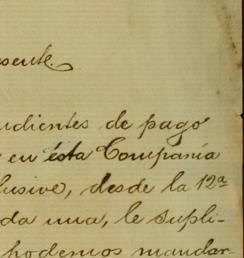 esente.
udientes de pago
en ésta Compania
lusive, desde la 12ª
da una, le supli-
podemos mandar